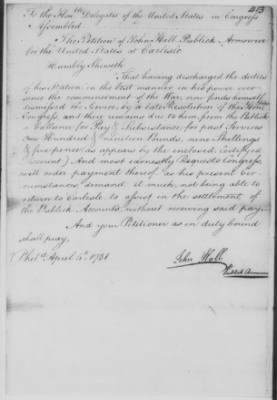 413
To the Hon.ble Delegates of the United States in Congress
Assembled
The Petition of John Hall Publick Armourer
for the United States at Carlisle
Humbly Sheweth
That having discharged the duties
of his station in the best manner in his power ever
since the commencement of the War, now finds himself
dismissed the Service, by a late Resolution of the Hon.ble
Congress, and there remains due to him from the Publick
a ballance for Pay & Subsistance for past Services
One Hundred & nineteen Pounds, nine Shillings
& five pence (as appears by the enclosed Certified
Account) And most earnestly Requests Congress
will order payment thereof as his present cir-
cumstances, demand it much, not being able to
return to Carlisle to assist in the settlement of
the Publick Accounts, without receiving said pay.
And your Petitioner as in duty bound
shall pray.
Phil.a April 4th 1781
John Hall